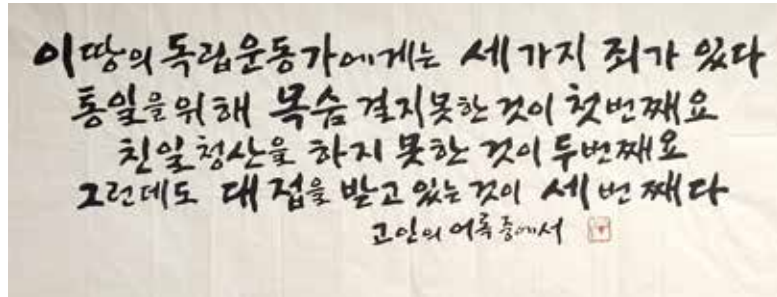 이땅의 독립운동가에게는 세가지 죄가 있다
통일을위해 목숨 걸지못한 것이 첫번째요
친일청산을 하지 못한 것이 두번째요
그런데도 대접을 받고 있는것이 세번째다
고인의 어록중에서